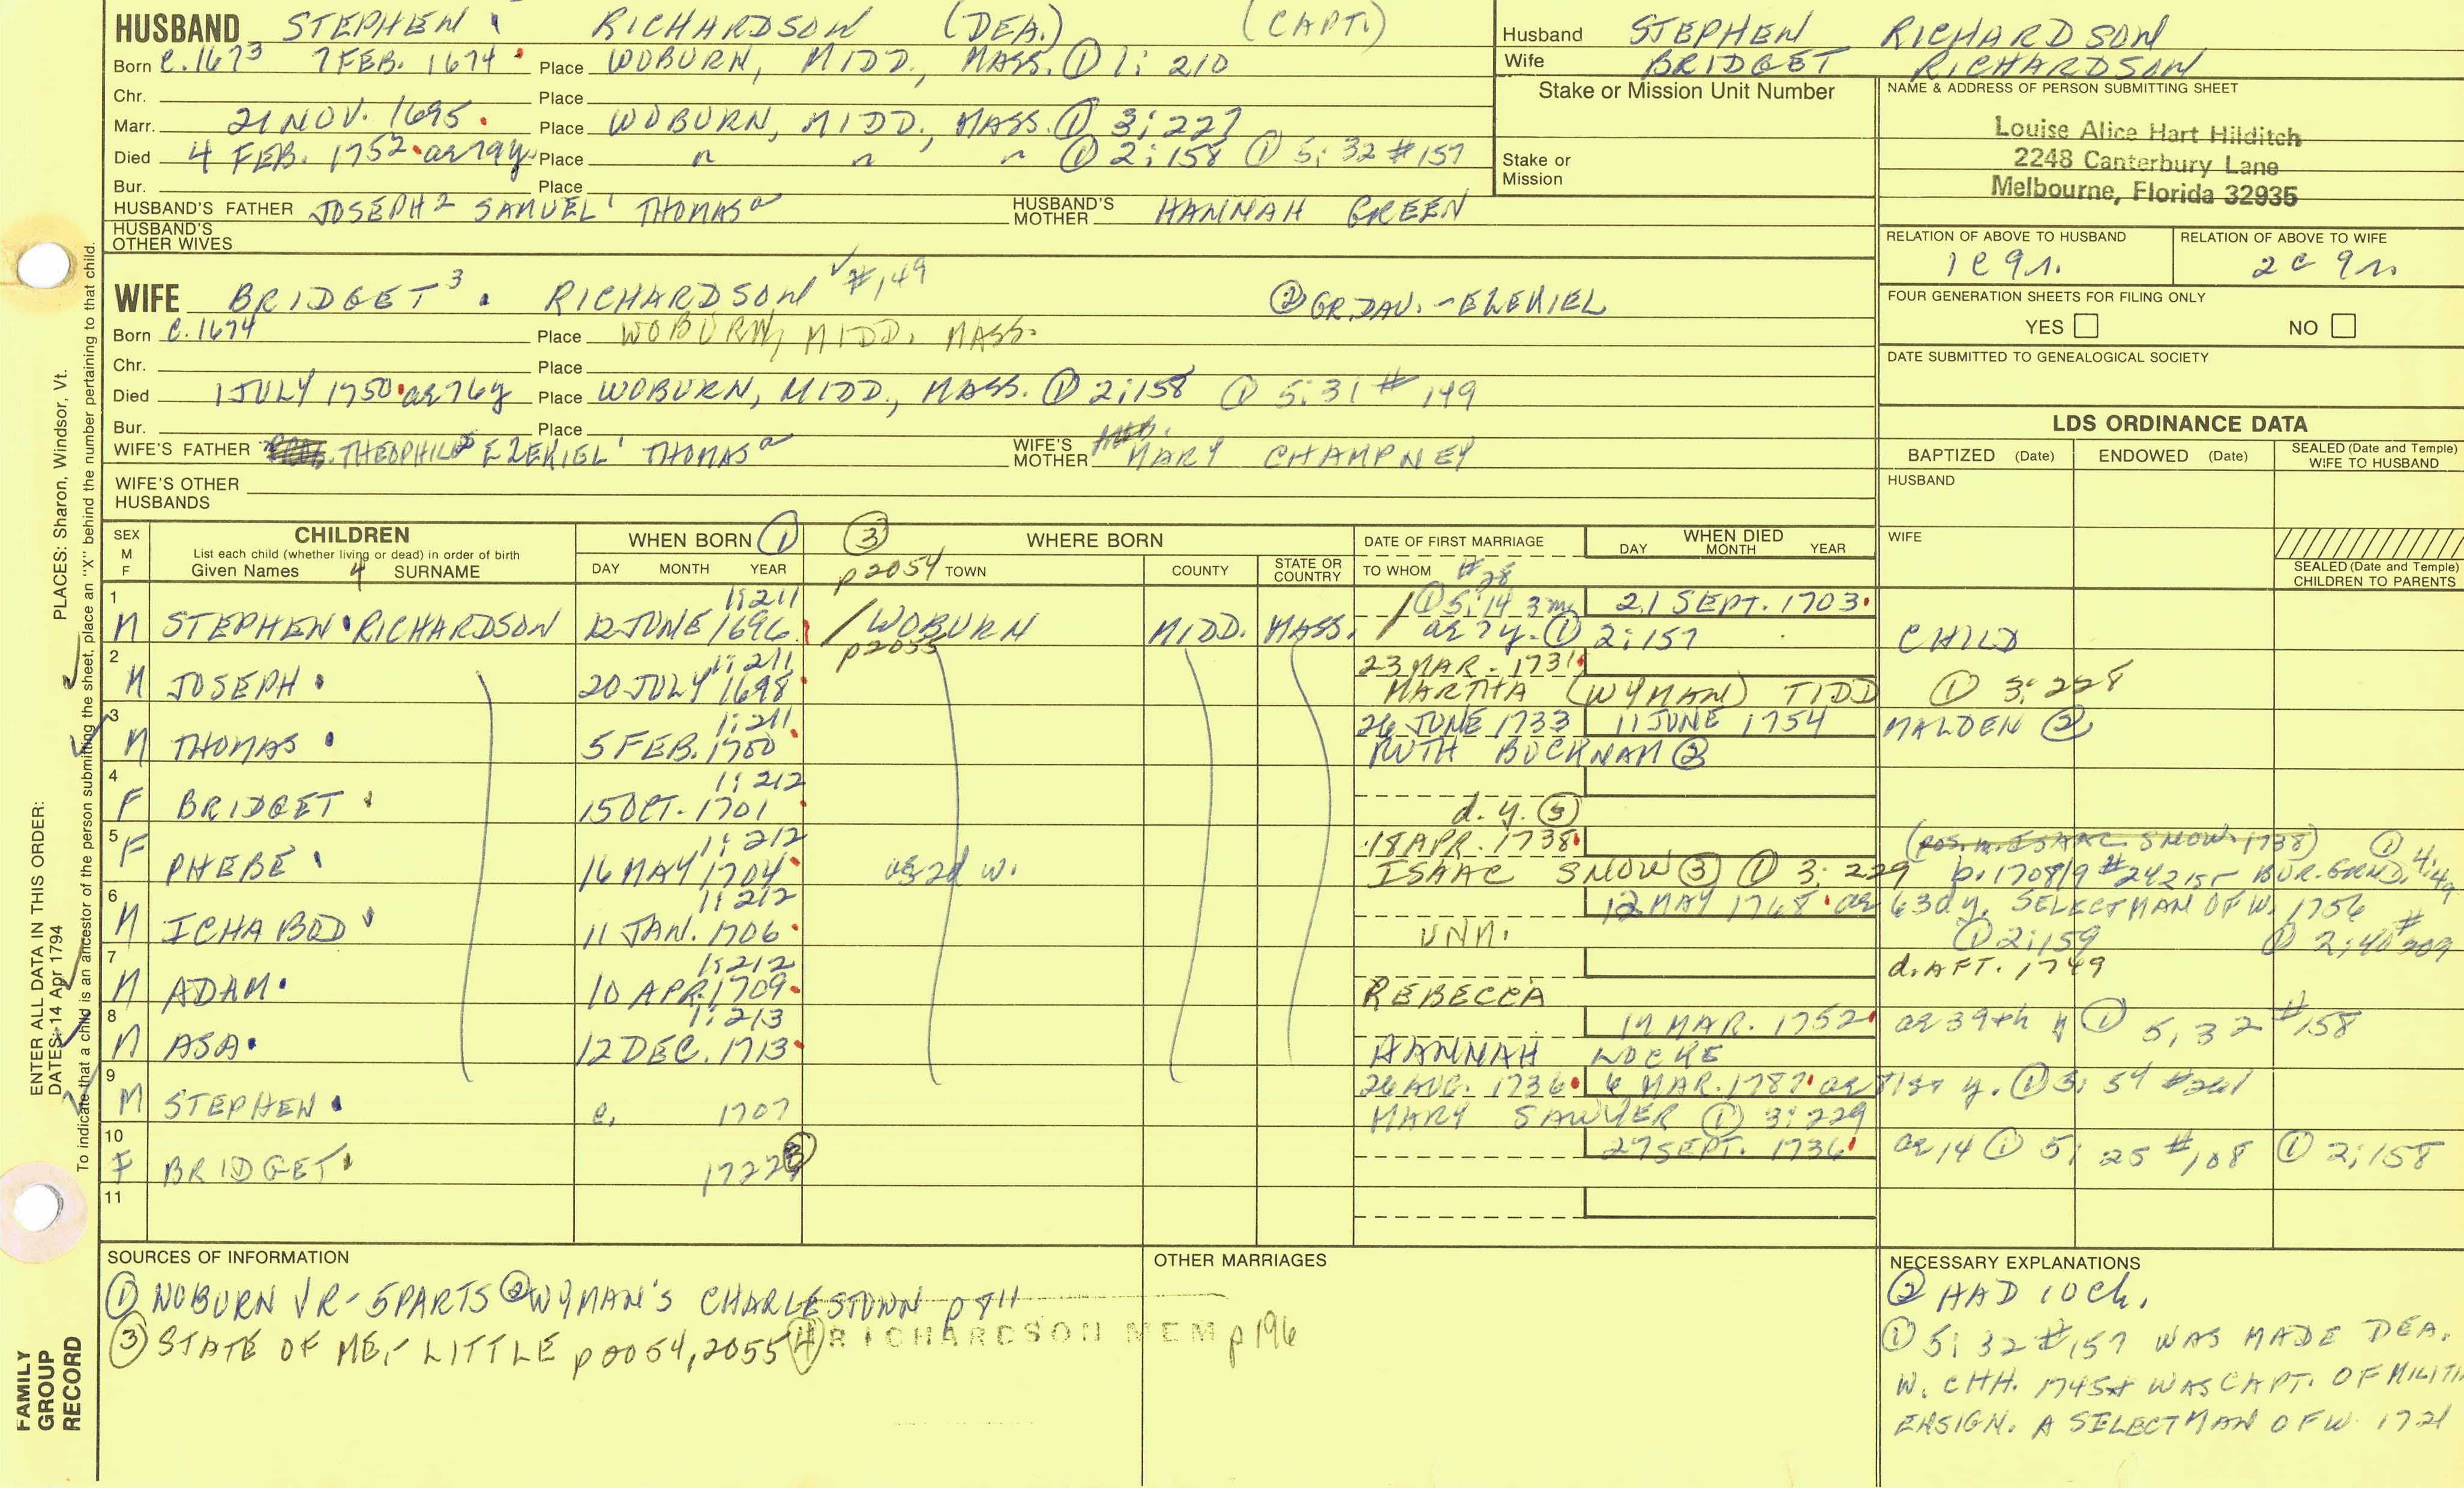 HUSBAND STEPHEN RICHARDSON (DEA.) (CAPT.)
Born C.1673 7 FEB. 1674 Place WOBURN, MIDD., MASS. ① 1: 210
Chr. Place
Marr. 21 NOV. 1695. Place WOBURN, MIDD., MASS. ① 3: 227
Died 4 FEB. 1752 ae 79y. Place " " " ① 2: 158 ① 5: 32 #157
Bur. Place
HUSBAND'S FATHER JOSEPH² SAMUEL¹ THOMASᵃ HUSBAND'S MOTHER HANNAH GREEN
HUSBAND'S OTHER WIVES
Husband STEPHEN RICHARDSON
Wife BRIDGET RICHARDSON
Stake or Mission Unit Number
Stake or Mission
NAME & ADDRESS OF PERSON SUBMITTING SHEET
Louise Alice Hart Hilditch
2248 Canterbury Lane
Melbourne, Florida 32935
RELATION OF ABOVE TO HUSBAND RELATION OF ABOVE TO WIFE
1C 9r. 2C 9r.
FOUR GENERATION SHEETS FOR FILING ONLY
YES NO
DATE SUBMITTED TO GENEALOGICAL SOCIETY
WIFE BRIDGET³ RICHARDSON ✓ #149 ② GR. DAU. - EZEKIEL
Born C.1674 Place WOBURN, MIDD. MASS.
Chr. Place
Died 1 JULY 1750 ae 76y Place WOBURN, MIDD., MASS. ① 2: 158 ① 5: 31 # 149
Bur. Place
WIFE'S FATHER THEOPHILUS EZEKIEL¹ THOMASᵃ WIFE'S MOTHER MARY CHAMPNEY
WIFE'S OTHER HUSBANDS
LDS ORDINANCE DATA
BAPTIZED (Date) ENDOWED (Date) SEALED (Date and Temple) WIFE TO HUSBAND
HUSBAND
WIFE
SEALED (Date and Temple) CHILDREN TO PARENTS
SEX M F CHILDREN WHEN BORN ① ③ WHERE BORN DATE OF FIRST MARRIAGE WHEN DIED
List each child (whether living or dead) in order of birth
Given Names 4 SURNAME DAY MONTH YEAR p2054 TOWN COUNTY STATE OR COUNTRY TO WHOM #28 DAY MONTH YEAR
1 1: 211 ① 5: 14 3m 21 SEPT. 1703
M STEPHEN RICHARDSON 12 JUNE 1696 WOBURN MIDD. MASS. ae 7y. ① 2: 157 CHILD
p2055
2 1: 211 23 MAR. 1731
M JOSEPH 20 JULY 1698 MARTHA (WYMAN) TIDD ① 3: 228
3 1: 211 26 JUNE 1733 11 JUNE 1754 MALDEN ②
M THOMAS 5 FEB. 1700 RUTH BUCKNAM ②
4 1: 212
F BRIDGET 15 OCT. 1701 d. y. ③
5 1: 212 18 APR. 1738 (pos. m. ISAAC SNOW 1738) ① 4: 49
F PHEBE 16 MAY 1704 as 2d w. ISAAC SNOW ③ ① 3: 229 b. 1708/9 BUR. GRND.
6 1: 212 12 MAY 1768 ae 63d y. SELECTMAN OF W. 1756
M ICHABOD 11 JAN. 1706 UNM. ① 2: 159 ① 2: 40 # 209
7 1: 212 d. AFT. 1749
M ADAM 10 APR. 1709 REBECCA
8 1: 213 MAR. 1752 ae 39th y ① 5: 32 #158
M ASA 12 DEC. 1713 HANNAH LOCKE
9 26 AUG. 1736 6 MAR. 1787 ae 71st y. ① 5: 54 #261
M STEPHEN c. 1707 MARY SAWYER ① 3: 229
10 27 SEPT. 1736 ae 14 ① 5: 25 #108 ① 2: 158
F BRIDGET 1722 ③
11
SOURCES OF INFORMATION
① WOBURN VR - 5 PARTS ② WYMAN'S CHARLESTOWN p 811
③ STATE OF ME, - LITTLE p2054, 2055 ④ RICHARDSON MEM p196
OTHER MARRIAGES
NECESSARY EXPLANATIONS
② HAD 10 Ch.
① 5: 32 #157 WAS MADE DEA.
W. CHH. 1745 & WAS CAPT. OF MILITI
ENSIGN. A SELECTMAN OF W. 1721
ENTER ALL DATA IN THIS ORDER:
DATES: 14 Apr 1794 PLACES: Sharon, Windsor, Vt.
To indicate that a child is an ancestor of the person submitting the sheet, place an "X" behind the number pertaining to that child.
FAMILY GROUP RECORD